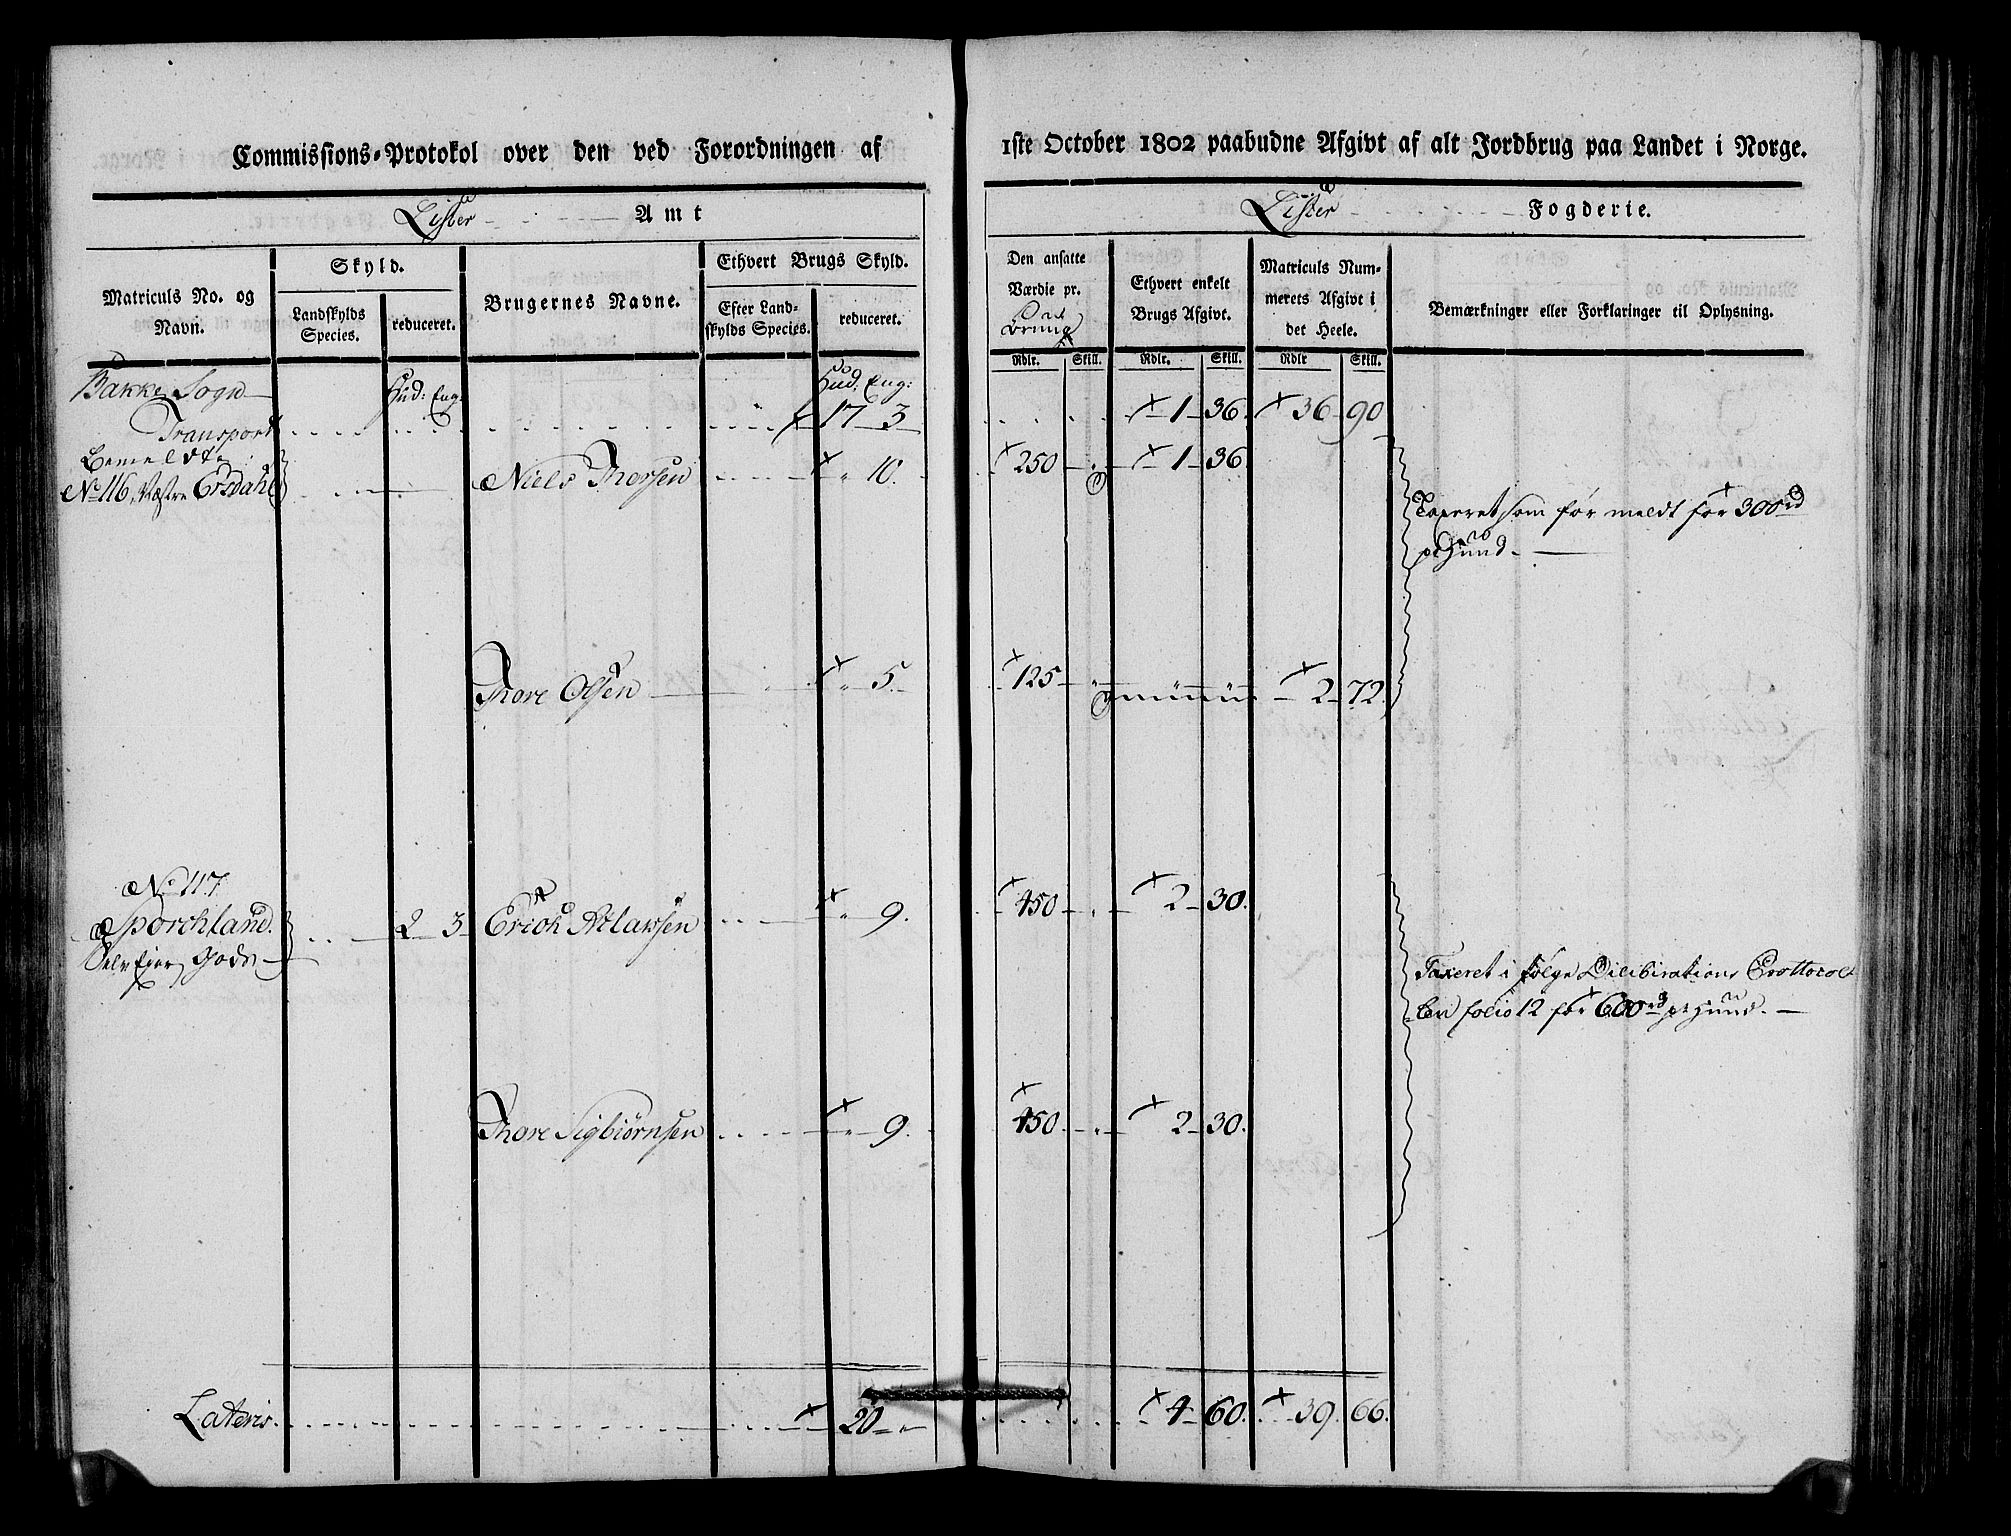 Commissions-Protokol over den ved Forordningen af
Lister Amt
Matriculs No. og Navn.
Skyld.
Landskylds Species.
reduceret.
Brugernes Navne.
Ethvert Brugs Skyld.
Efter Landskylds Species.
reduceret.
Bakke Sogn Hud: Eng: Hud: Eng:
Transport 17 3
Bemeldte
No 116, Væstre Erzdahl Niels Thorsen " 10.
Thore Olsen " 5.
No 117
Sporchland. 2 3 Erich Atlawsen " 9.
Selv Ejer Gods
Thore Sigbiørnsen " 9.
Lateris 20 "
1ste October 1802 paabudne Afgivt af alt Jordbrug paa Landet i Norge.
Lister Fogderie.
Den ansatte Værdie pr.
Ethvert enkelt Brugs Afgivt.
Matriculs Nummerets Afgivt i det Heele.
Bemærkninger eller Forklaringer til Oplysning.
Rdlr. Skill. Rdlr. Skill. Rdlr Skill.
1 36. 36 90
250 " 1 36.
Taxeret som før meldt for 300 rd
pr Huud.
125 " 2 72.
450 " 2 30.
Taxeret i følge Dilibirations Prottocol
len folio 12 for 600 rd pr Huud.
450 " 2 30.
4 60. 39. 66.